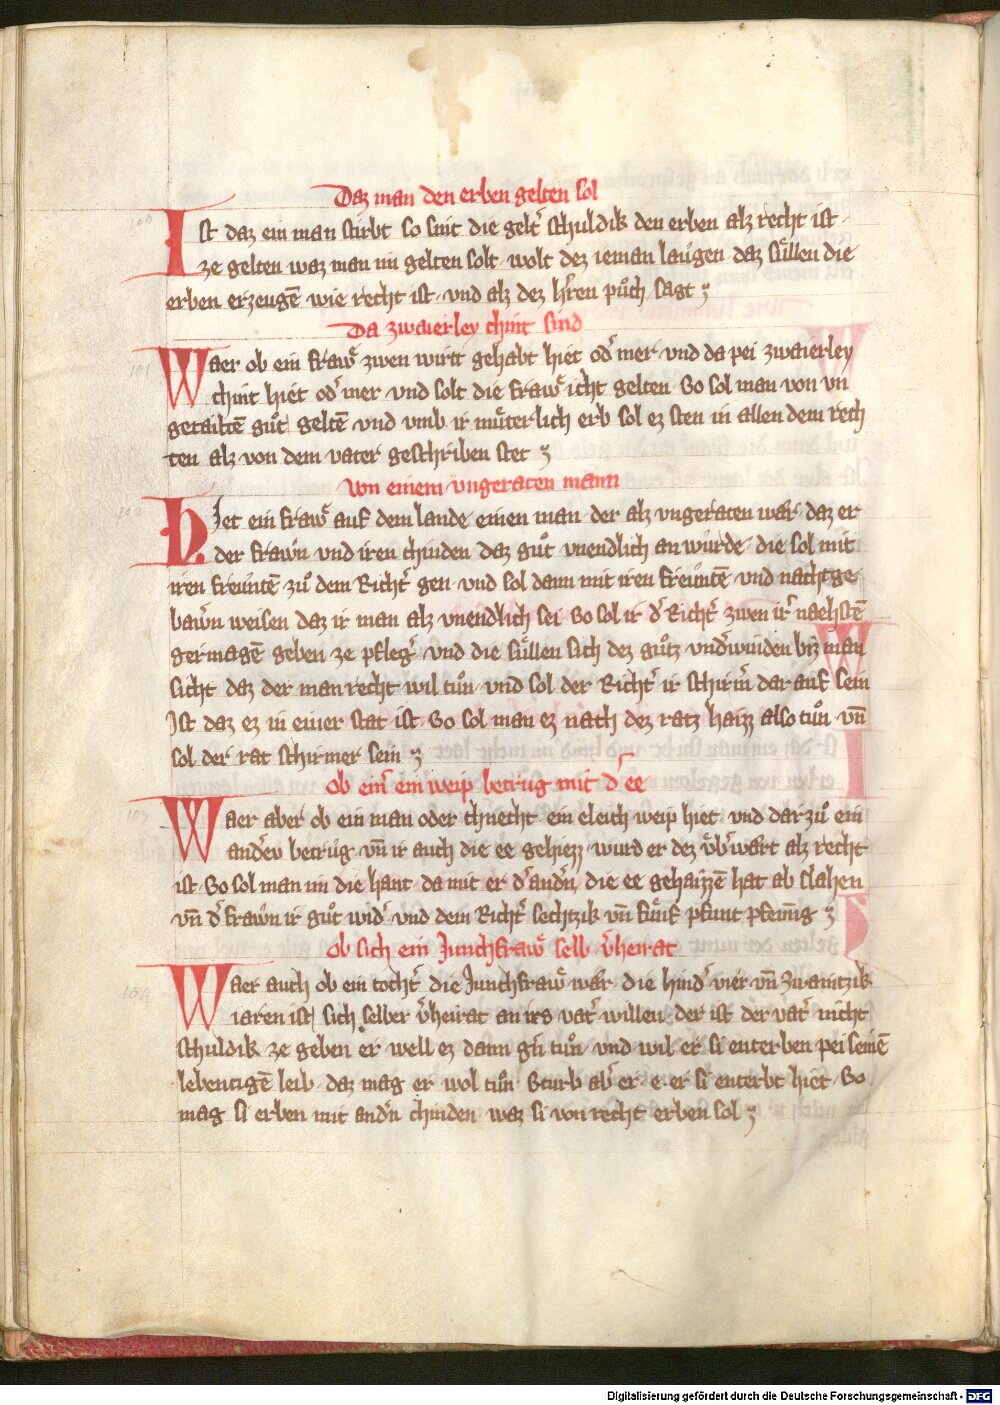 Daz man den erben gelten sol
100
Ist daz ein man stirbt so sint die gelt̾ schuldik den erben alz recht ist ·
ze gelten waz man im gelten solt · wolt dez ieman laugen daz suͤllen die
erben erzeugē wie recht ist · vnd alz dez hr̄en puͦch sagt
Da zwaierley chint sind
101
Waer ob ein fraw̄ zwen wirtt gehabt hiet od̾ mer · vnd da pei zwaierley
chint hiet od̾ mer · vnd solt die fraw̄ icht gelten · So sol man von vn
getailtē guͦt geltē · vnd vmb ir muͤterlich erb sol ez sten in allen dem rech
ten alz von dem vater geschriben stet
Von einem vngeraten mann
102
Hiet ein fraw̄ auf dem lande einen man · der alz vngeraten waͤr · daz er
der frawn̄ vnd iren chinden daz guͦt vnendlich an wurde · die sol mit
iren freuntē zuͦ dem Richt̾ gen · vnd sol dann mit iren freuntē vnd nachtge
baw̄n weisen daz ir man alz vnendlich sei So sol ir d̾ Richt̾ zwen ir̾ naehstē
germagē geben ze pfleg̾ · vnd die suͤllen sich dez guͦtz vnd̾winden biz man
sicht daz der man recht wil tuͦn · vnd sol der Richt̾ ir schirm̄ dar auf sein
Ist daz ez in einer stat ist · So sol man ez nach dez ratz haizz also tuͦn · vn̄
sol der rat schirmer sein
Ob ein̾ ein weip betrug mit d̾ ee
103
Waer aber ob ein man oder chnecht ein eleich weip hiet · vnd dar zuͦ ein
and̾ev betrug · vn̄ ir auch die ee gehiezz · wurd er dez vͤb̾wart alz recht
ist · So sol man im die hant · da mit er d̾ and̾n die ee gehaizzē hat ab slahen
vn̄ d̾ frawn̄ ir guͦt wid̾ · vnd dem Richt̾ sechtzik vn̄ fuͤnf pfunt pfennig
Ob sich ein Junchfraw̄ selb v̾heirat
104
Waer auch ob ein tocht̾ die Junchfraw̄ waͤr · die hind̾ vier vn̄ zwaintzik
iaren ist · sich selber v̾heirat an irs vat̾ willen · der ist der vat̾ nicht
schuldik ze geben er well ez dann gn̄ tuͦn · vnd wil er si enterben pei seinē
lebentigē leib · daz mag er wol tuͦn · Sturb ab̾ er · e · er si enterbt hiet · So
mag si erben mit and̾n chinden waz si von recht erben sol
Digitalisierung gefördert durch die Deutsche Forschungsgemeinschaft - DFG